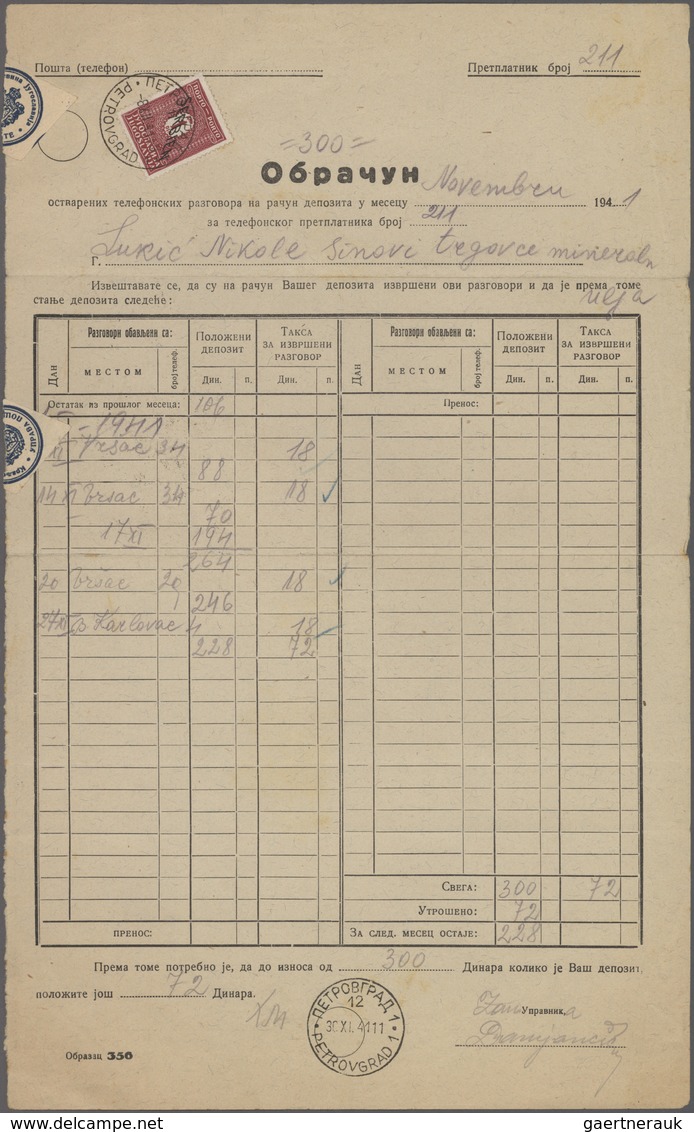 Пошта (телефон)
Претплатник број 211
ПЕТРОВГРАД
PETROVGRAD
ПОРТО - PORTO
=300=
Обрачун Novembru
остварених телефонских разговора на рачун депозита у месецу 1941
за телефонског претплатника број 211
Г. Lukić Nikole sinovi trgovce mineraln
ulja
Извештавате се, да су на рачун Вашег депозита извршени ови разговори и да је према томе
стање депозита следеће:
Дан Разговори обављени са: МЕСТОМ број телеф. ПОЛОЖЕНИ ДЕПОЗИТ Дин. п. ТАКСА ЗА ИЗВРШЕНИ РАЗГОВОР Дин. п.
Дан Разговори обављени са: МЕСТОМ број телеф. ПОЛОЖЕНИ ДЕПОЗИТ Дин. п. ТАКСА ЗА ИЗВРШЕНИ РАЗГОВОР Дин. п.
Остатак из прошлог месеца: 106
Пренос:
1941
XI Vršac 34 18
88
14 XI Vršac 34 18
70
17 XI 194
264
20 Vršac 20 18
246
27 XI B Karlovac 4 18
228 72
Свега: 300 72
Утрошено: 72
ПРЕНОС:
За след. месец остаје: 228
Према томе потребно је, да до износа од 300 Динара колико је Ваш депозит,
положите још 72 Динара.
ПЕТРОВГРАД 1
12
30 XI. 41 11
PETROVGRAD 1
Управник,
Образац 350
gaertnerauk